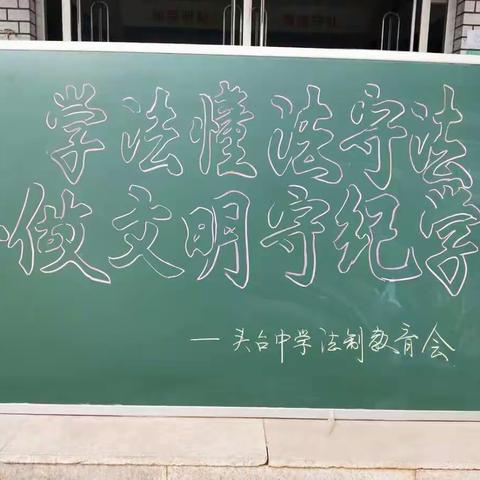 学法懂法守法
做文明守纪学
一头台中学法制教育会